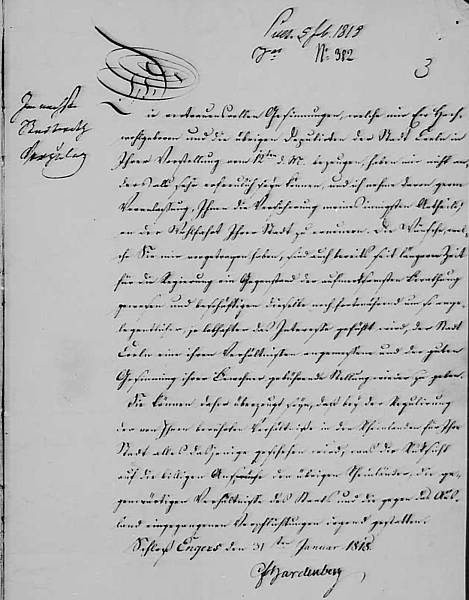 Pres. 5 Feb. 1818
Jour. Nr. 382
3
Die vertrauensvollen Gesinnungen, welche mir Ew. Hoch-
wohlgeboren und die übrigen Deputirten der Stadt Coeln in
Ihrer Vorstellung vom 12ten d. M. bezeugen, haben mir nicht an-
ders als sehr erfreulich seyn können, und ich nehme daran gerne
Veranlassung, Ihnen die Versicherung meines innigsten Antheils
an der Wohlfahrt Ihrer Stadt zu erneuern. Die Wünsche, wel-
che Sie mir vorgetragen haben, sind auch bereits seit längerer Zeit
für die Regierung ein Gegenstand der aufmerksamsten Berathung
gewesen und beschäftigen dieselbe noch fortwährend um so ange-
legentlicher, je lebhafter das Interesse gefühlt wird, der Stadt
Coeln eine ihren Verhältnissen angemessene und der guten
Gesinnung ihrer Bewohner gebührende Stellung wieder zu geben.
Sie können daher überzeugt seyn, daß bey der Regulirung
der von Ihnen berührten Verhältnisse in den Rheinlanden für Ihre
Stadt alles dasjenige geschehen wird, was die Rücksicht
auf die billigen Ansprüche der übrigen Rheinländer, die ge-
genwärtigen Verhältnisse des Staats und die gegen das Aus-
land eingegangenen Verpflichtungen irgend gestatten.
Schloß Engers den 31ten Januar 1818.
CHardenberg